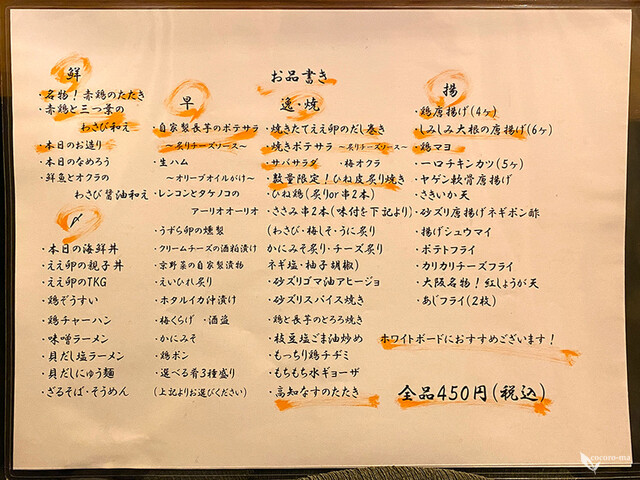 お品書き
鮮
・名物！赤鶏のたたき
・赤鶏と三つ葉の
わさび和え
・本日のお造り
・本日のなめろう
・鮮魚とオクラの
わさび醤油和え
〆
・本日の海鮮丼
・ええ卵の親子丼
・ええ卵のTKG
・鶏ぞうすい
・鶏チャーハン
・味噌ラーメン
・貝だし塩ラーメン
・貝だしにゅう麺
・ざるそば・そうめん
早
・自家製長芋のポテサラ
～炙りチーズソース～
・生ハム
～オリーブオイルがけ～
・レンコンとタケノコの
アーリオオーリオ
・うずら卵の燻製
・クリームチーズの酒粕漬け
・京野菜の自家製漬物
・えいひれ炙り
・ホタルイカ汁漬け
・梅くらげ ・酒盗
・かにみそ
・鶏ポン
・選べる肴3種盛り
(上記よりお選びください)
逸・焼
・焼きたてええ卵のだし巻き
・焼きポテサラ ～炙りチーズソース～
・サバサラダ ・梅オクラ
・数量限定！ひね皮炙り焼き
・ひね鶏(炙りor串2本)
・ささみ串2本(味付を下記より)
(わさび・梅しそ・うに炙り
かにみそ炙り・チーズ炙り
ネギ塩・柚子胡椒)
・砂ズリゴマ油アヒージョ
・砂ズリスパイス焼き
・鶏と長芋のとろろ焼き
・枝豆塩ごま油炒め
・もっちり鶏チヂミ
・もちもち水ギョーザ
・高知なすのたたき
揚
・鶏唐揚げ(4ヶ)
・しみしみ大根の唐揚げ(6ヶ)
・鶏マヨ
・一口チキンカツ(5ヶ)
・ヤゲン軟骨唐揚げ
・さきいか天
・砂ズリ唐揚げネギポン酢
・揚げシュウマイ
・ポテトフライ
・カリカリチーズフライ
・大阪名物！紅しょうが天
・あじフライ(2枚)
ホワイトボードにおすすめございます！
全品450円(税込)
cocoro-ma